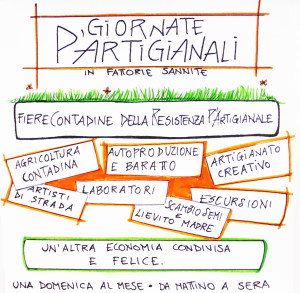 GIORNATE
P'ARTIGIANALI
IN FATTORIE SANNITE
FIERE CONTADINE DELLA RESISTENZA P'ARTIGIANALE
AGRICOLTURA
CONTADINA
AUTOPRODUZIONE
E BARATTO
ARTIGIANATO
CREATIVO
ARTISTI
DI STRADA
LABORATORI
SCAMBIO SEMI
E
LIEVITO MADRE
ESCURSIONI
UN'ALTRA ECONOMIA CONDIVISA
E FELICE.
UNA DOMENICA AL MESE • DA MATTINO A SERA